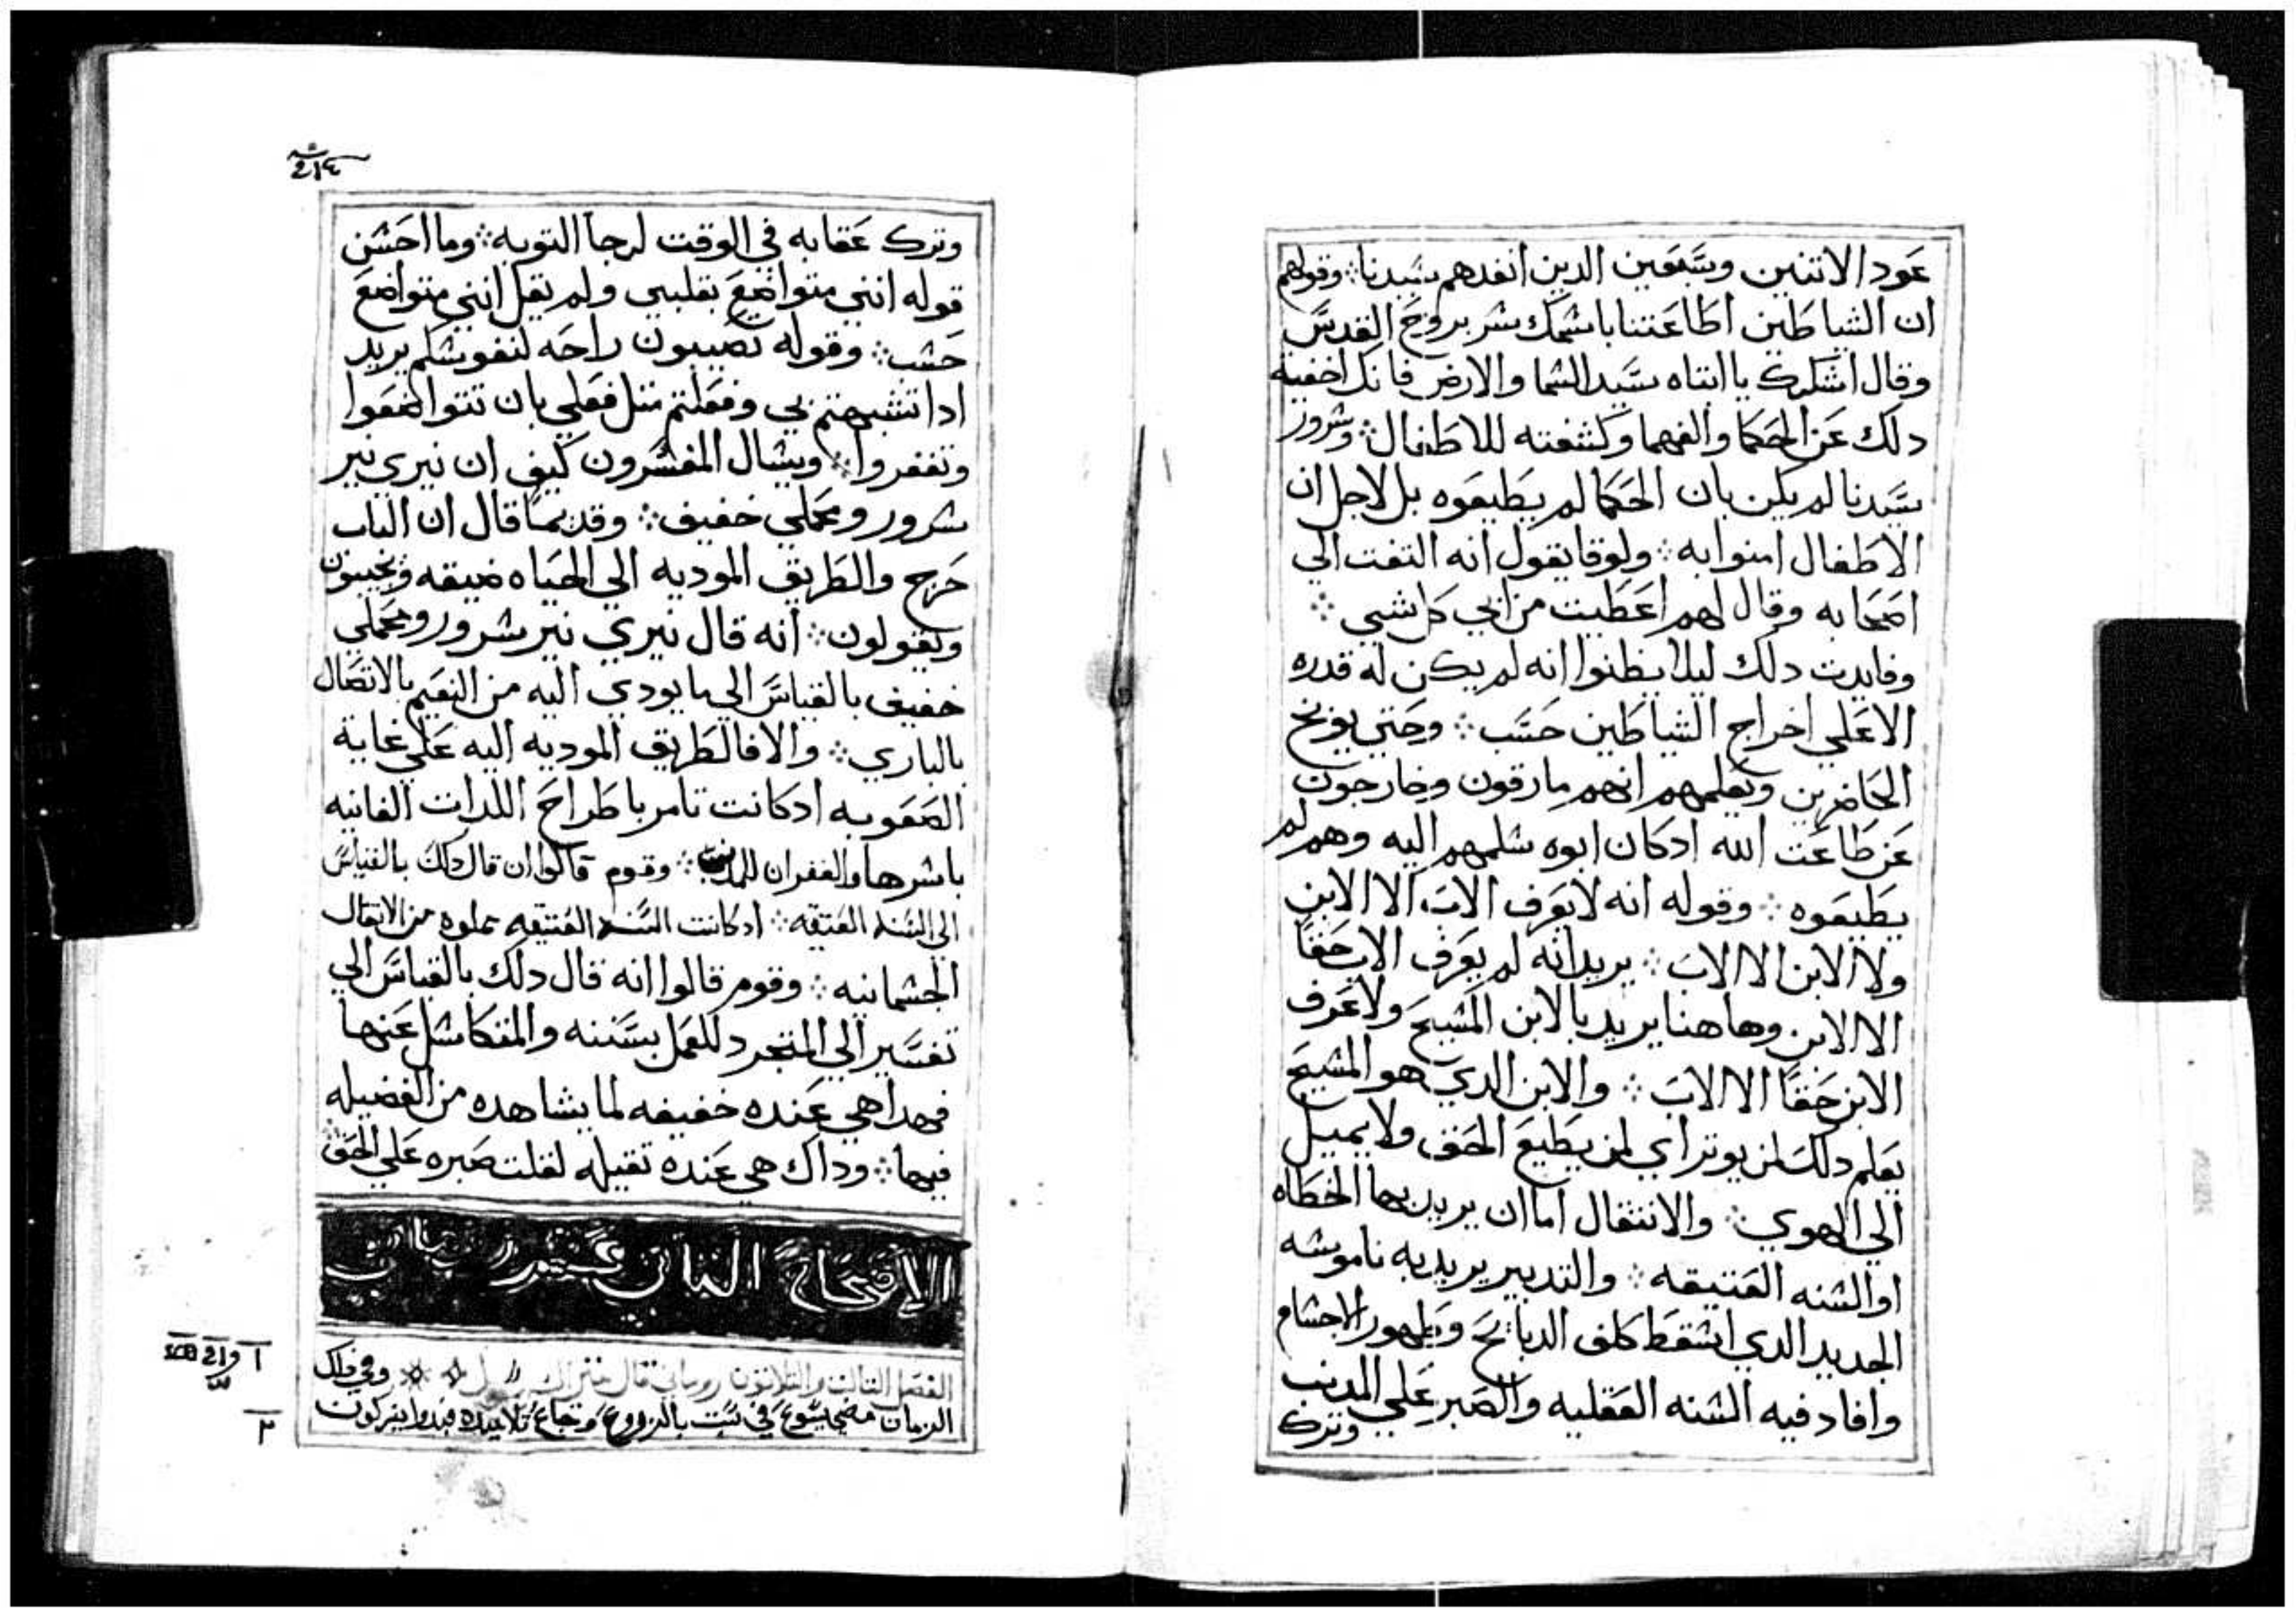 عود الاتنين وسبعين الدين انفدهم سيدنا ܀ وقولهم
ان الشياطين اطاعتنا باسمك بشر بروح القدس
وقال اشكرك يا ابتاه سيد السما والارض فانك اخفية
دلك عن الحكما والفهما وكشفته للاطفال ܀ وسرور
سيدنا لم يكن بان الحكما لم يطيعوه بل لاجل ان
الاطفال امنوا به ܀ ولوقا يقول انه التفت الي
اصحابه وقال لهم اعطيت من ابي كل شيي ܀
وفايدت دلك ليلا يظنوا انه لم يكن له قدره
الا علي اخراج الشياطين حسب ܀ وحتي يوبخ
الحاضرين ويعلمهم انهم مارقون وخارجون
عن طاعت الله ادكان ابوه سلمهم اليه وهم لم
يطيعوه ܀ وقوله انه لا يعرف الاب الا الابن
ولا الابن الا الاب ܀ يريد انه لم يعرف الاب حقا
الا الابن وهاهنا يريد بالابن المسيح ولا عرف
الابن حقا الا الاب ܀ والابن الدي هو المسيح
يعلم دلك لمن يوتر اي لمن يطيع الحق ولا يميل
الي الهوي ܀ والاتتقال اما ان يريد بها الخطاه
او السنه العتيقه ܀ والتدبير يريد به ناموسه
الجديد الدي اسقط كلف الدبايح وطهور الاجسام
وافاد فيه السنه العقليه والصبر علي المدنب
وترك
٢١٤
وترك عقابه في الوقت لرجا التوبه ܀ وما احسن
قوله انني متواضع بقلبي ولم يقل انني متواضع
حسب ܀ وقوله تصيبون راحه لنفوسكم يريد
ادا تشبهتم بي وفعلتم متل فعلي بان تتواضعوا
وتغفروا ܀ ويسال المفسرون كيف ان نيري نير
سرور ومحملي خفيف ܀ وقديما قال ان الباب
حرج والطريق الموديه الي الحياه ضيقه ويجيبون
ويقولون ܀ انه قال نيري نير سرور ومحملي
خفيف بالقياس الي ما يودي اليه من النعيم بالاتصال
بالباري ܀ والا فالطريق الموديه اليه علي غاية
الصعوبه ادكانت تامر باطراح اللدات الفانيه
باسرها والغفران للمدنب ܀ وقوم قالوا ان قال دلك بالقياس
الي السنه العتيقه ܀ ادكانت السنه العتيقه مملوه من الاتقال
الجسمانيه ܀ وقوم قالوا انه قال دلك بالقياس الي
تفسير الي المتجرد للعمل بسننه والمتكاسل عنها
فهدا هي عنده خفيفه لما يشاهده من الفضيله
فيها ܀ وداك هي عنده تقيله لقلت صبره علي الحق ܀
الاصحاح التاني عشر
الفصل التالت والتلاتون روماني قال متي وفي دلك
الزمان مضي يسوع في سبت بالزروع وجاع تلاميده فبدوا يفركون